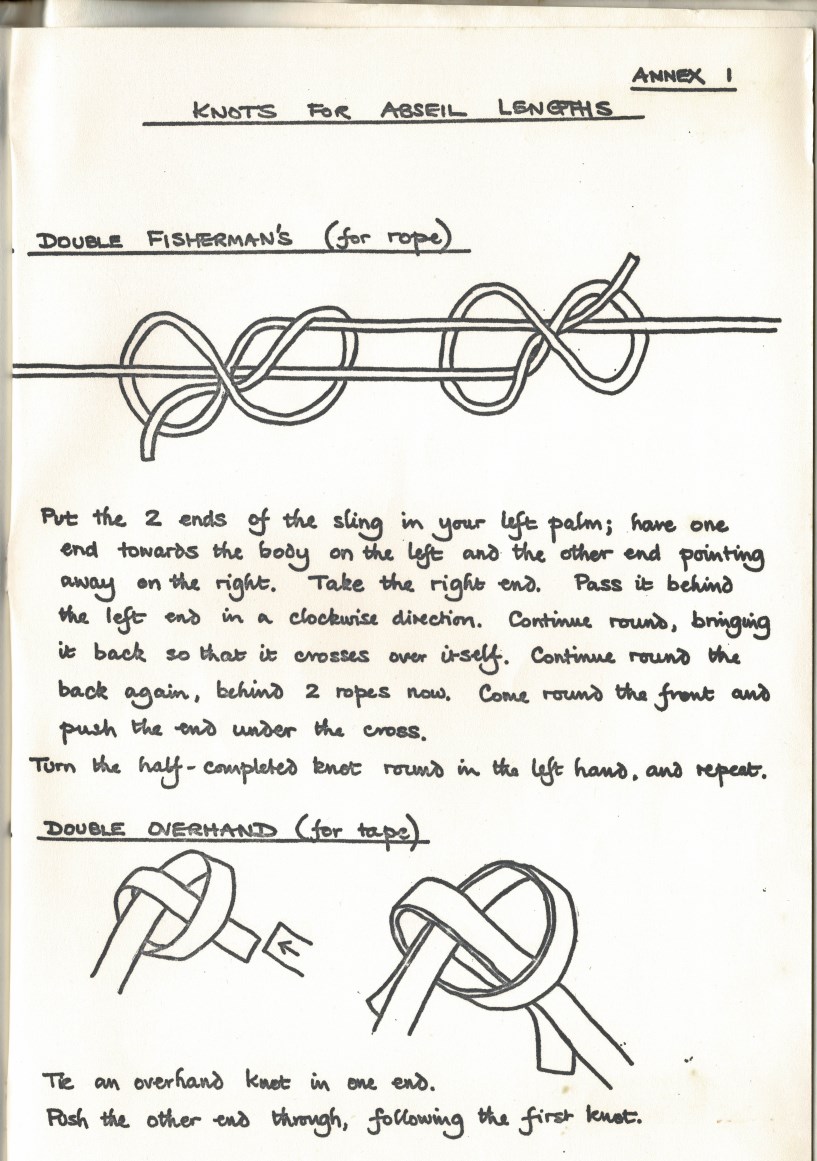 ANNEX 1
KNOTS FOR ABSEIL LENGTHS
DOUBLE FISHERMAN'S (for rope)
Put the 2 ends of the sling in your left palm; have one
end towards the body on the left and the other end pointing
away on the right. Take the right end. Pass it behind
the left end in a clockwise direction. Continue round, bringing
it back so that it crosses over itself. Continue round the
back again, behind 2 ropes now. Come round the front and
push the end under the cross.
Turn the half-completed knot round in the left hand, and repeat.
DOUBLE OVERHAND (for tape)
Tie an overhand knot in one end.
Push the other end through, following the first knot.